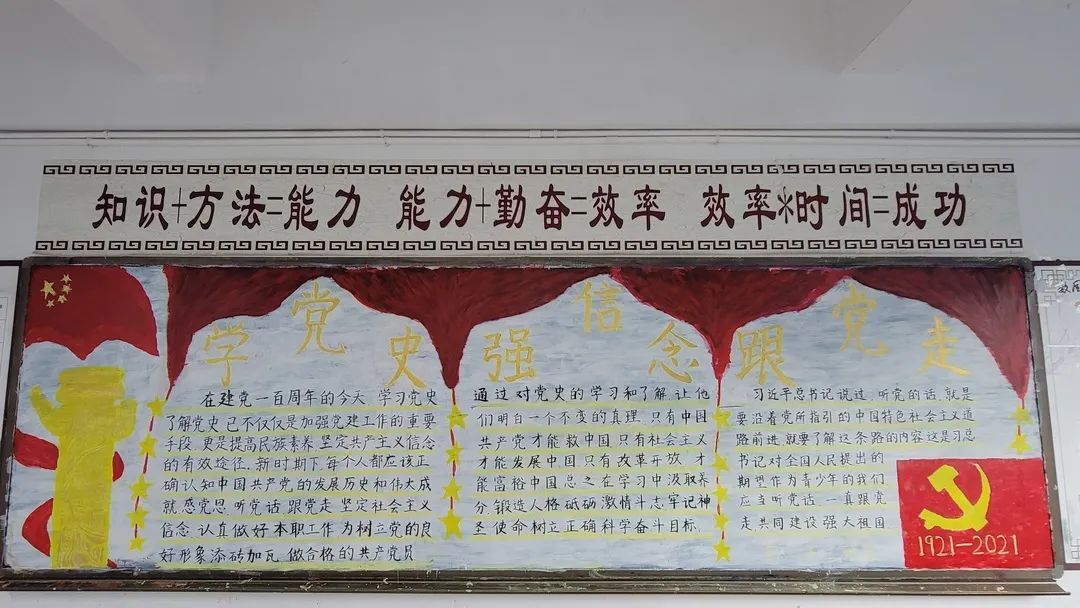 知识+方法=能力 能力+勤奋=效率 效率*时间=成功
学党史 强信念 跟党走
在建党一百周年的今天 学习党史
了解党史 已不仅仅是加强党建工作的重要
手段 更是提高民族素养 坚定共产主义信念
的有效途径.新时期下.每个人都应该正
确认知中国共产党的发展历史和伟大成
就.感党恩.听党话.跟党走 坚定社会主义
信念.认真做好本职工作 为树立党的良
好形象添砖加瓦.做合格的共产党员
通过对党史的学习和了解.让他
们明白一个不变的真理.只有中国
共产党才能救中国.只有社会主义
才能发展中国.只有改革开放.才
能富裕中国总之在学习中汲取养
分.锻造人格.砥砺激情斗志.牢记神
圣使命.树立正确科学奋斗目标.
习近平总书记说过.听党的话.就是
要沿着党所指引的中国特色社会主义道
路前进.就要了解这条路的内容这是习总
书记对全国人民提出的
期望作为青少年的我们
应当听党话.一真跟党
走共同建设强大祖国
1921-2021